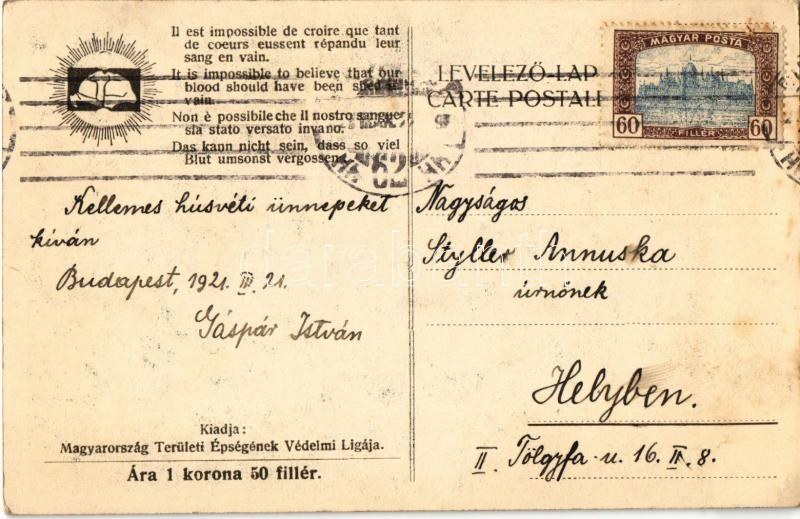 Il est impossible de croire que tant
de coeurs eussent répandu leur
sang en vain.
It is impossible to believe that our
blood should have been shed in
vain.
Non è possibile che il nostro sangue
sia stato versato invano.
Das kann nicht sein, dass so viel
Blut umsonst vergossen
LEVELEZŐ-LAP
CARTE POSTALE
MAGYAR POSTA
60 FILLÉR 60
62
Kellemes húsvéti ünnepeket
kíván
Budapest, 1921. III. 21.
Gáspár István
Nagyságos
Styller Annuska
úrnőnek
Helyben.
II. Tölgyfa-u. 16. II. 8.
Kiadja:
Magyarország Területi Épségének Védelmi Ligája.
Ára 1 korona 50 fillér.